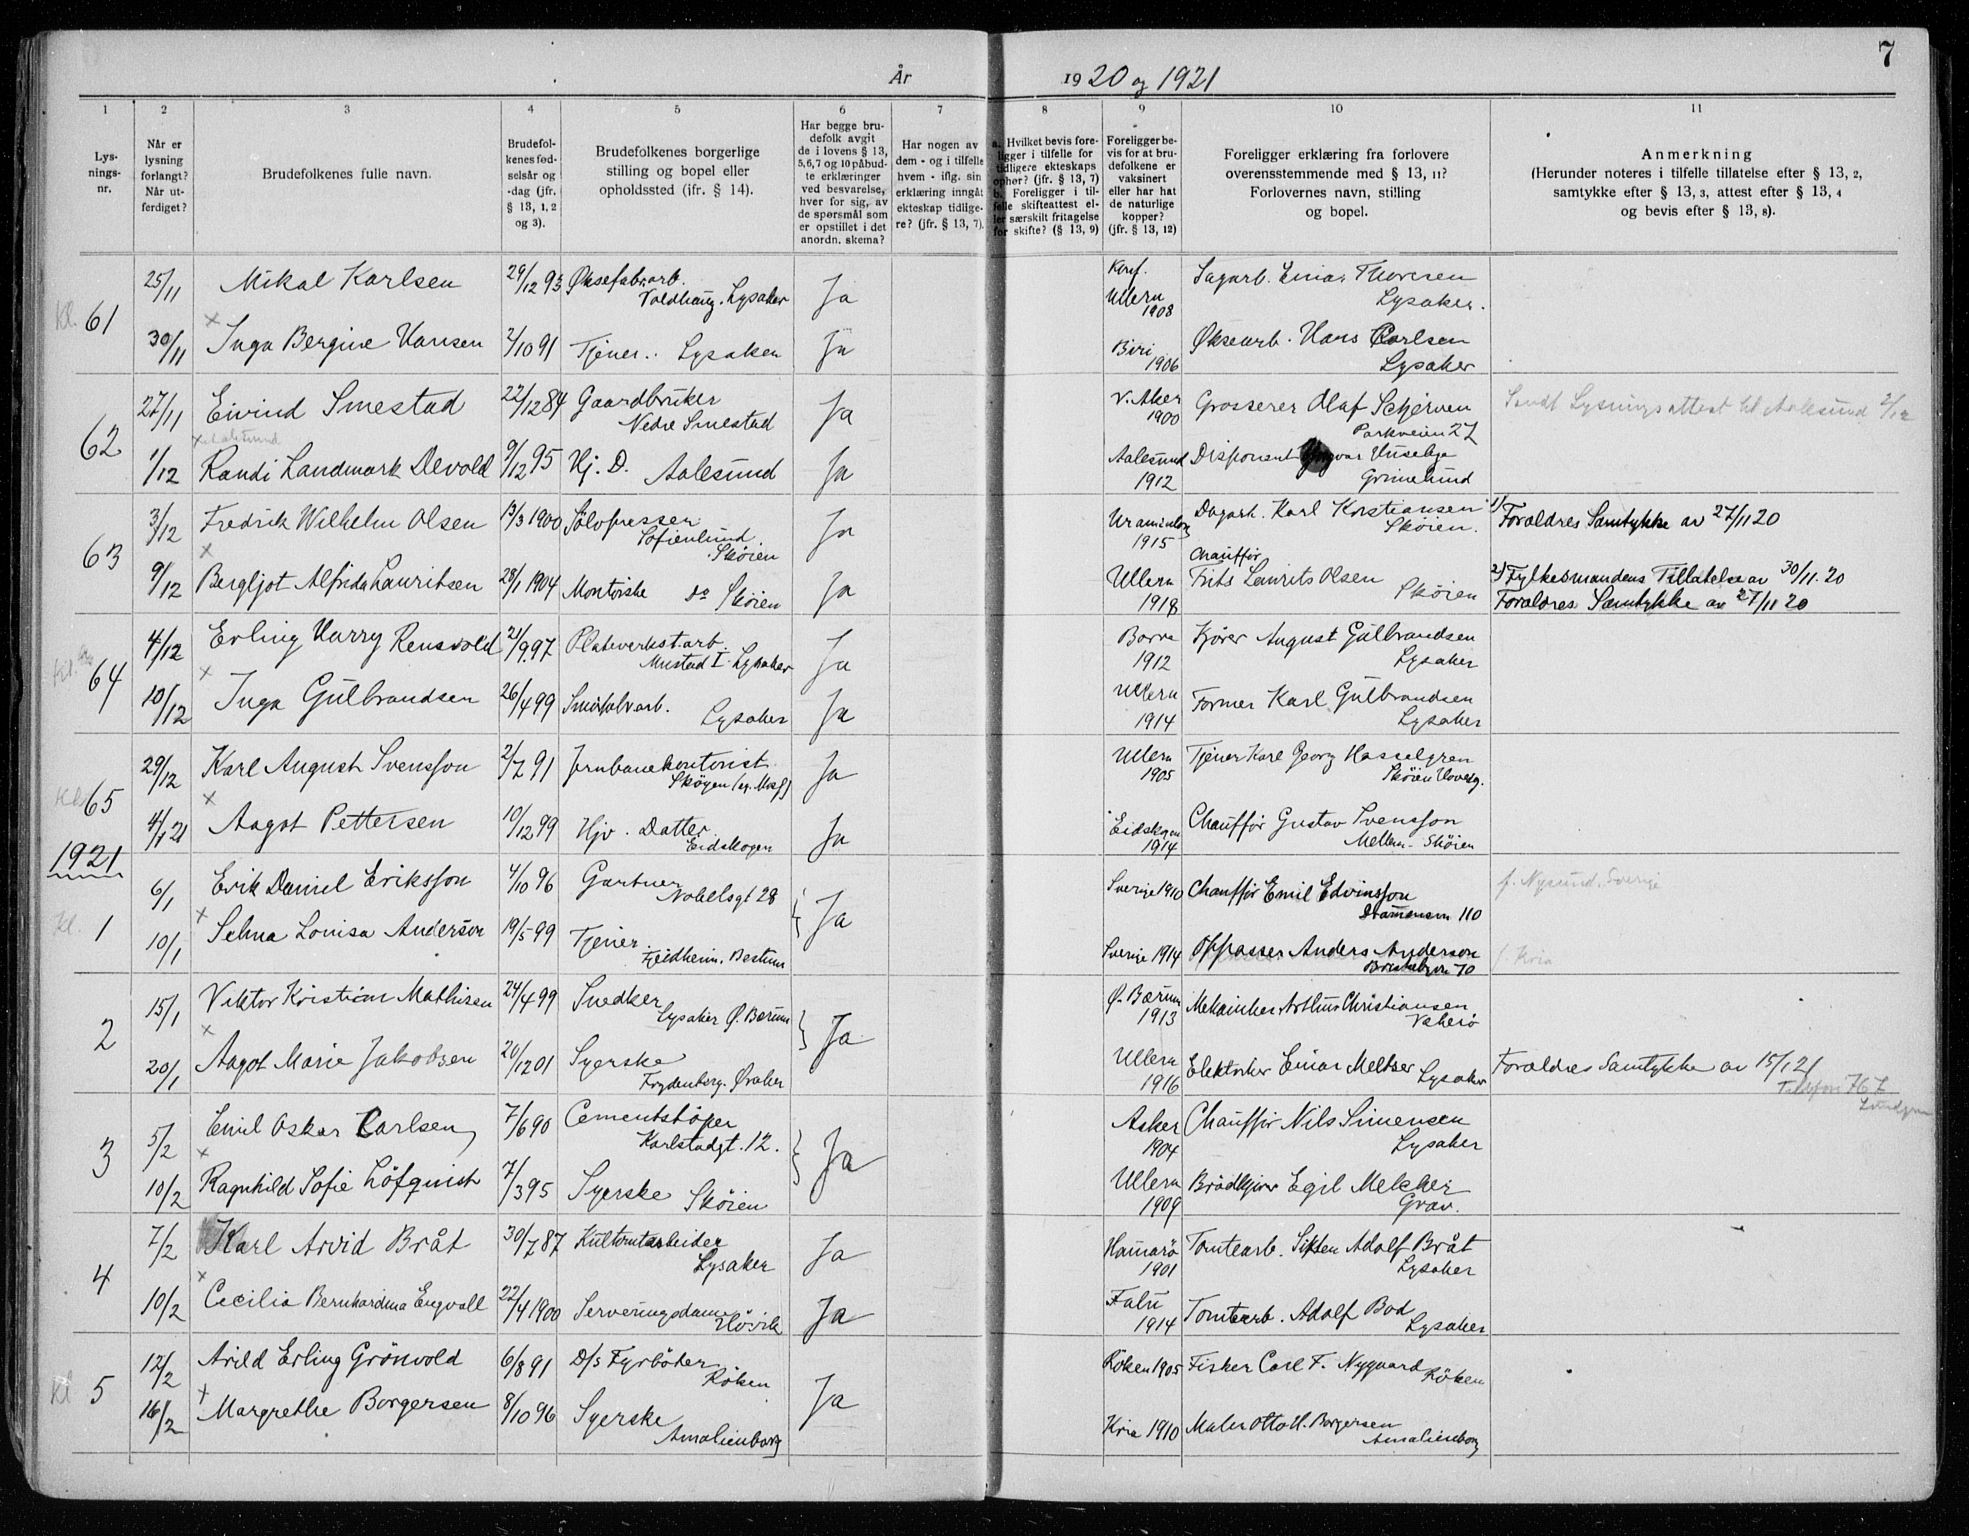 7
År 1920 og 1921
1 2 3 4 5 6 7 8 9 10 11
Lys-
nings-
nr.
Når er
lysning
forlangt?
Når ut-
ferdiget?
Brudefolkenes fulle navn.
Brudefol-
kenes fød-
selsår og
-dag (jfr.
§ 13, 1, 2
og 3).
Brudefolkenes borgerlige
stilling og bopel eller
opholdssted (ifr. § 14).
Har begge bru-
defolk avgit
de i lovens § 13,
5,6,7 og 10 påbud-
te erklæringer
ved besvarelse,
hver for sig, av
de spørsmål som
er opstillet i det
anordn. skema?
Har nogen av
dem - og i tilfelle
hvem - iflg. sin
erklæring inngåt
ekteskap tidlige-
re? (jfr. § 13, 7).
a. Hvilket bevis fore-
ligger i tilfelle for
tidligere ekteskaps
ophør? (jfr. § 13, 7)
b. Foreligger i til-
felle skifteattest el-
ler særskilt fritagelse
for skifte? (§ 13, 9)
Foreligger be-
vis for at bru-
defolkene er
vaksinert
eller har hat
de naturlige
kopper?
(jfr. § 13, 12)
Foreligger erklæring fra forlovere
overensstemmende med § 13, 11?
Forlovernes navn, stilling
og bopel.
Anmerkning
(Herunder noteres i tilfelle tillatelse efter § 13, 2,
samtykke efter § 13, 3, attest efter § 13, 4
og bevis efter § 13, 8).
Kl. 61 25/11 Mikal Karlsen 29/12 93 Øksefabr.arb. Voldhaug. Lysaker Ja Konf. Ullern 1908 Sagarb. Einar Thoresen Lysaker.
30/11 × Inga Bergine Hansen 2/10 91 Tjener. Lysaker Ja Biri 1906 Øksearb. Hans Carlsen Lysaker
62 27/11 Eivind Smestad 22/12 84 Gaardbruker Nedre Smestad Ja V. Aker 1900 Grosserer Olaf Schjerven Parkveien 27 Sendt Lysningsattest til Aalesund 2/12
1/12 × Randi Landmark Devold 9/12 95 Hj. D. Aalesund Ja Aalesund 1912 Disponent Yngvar Huseby Grimelund
63 3/12 Fredrik Wilhelm Olsen 13/3 1900 Sølvpresser Sofienlund. Skøien Ja Uranienborg 1915 Dagarb. Karl Kristiansen Skøien. 1) Forældres Samtykke av 27/11 20
9/12 × Bergljot Alfrida Lauritsen 28/1 1904 Montørske do Skøien Ja Ullern 1918 Chauffør Frits Laurits Olsen Skøien 2) Fylkesmandens Tillatelse av 30/11. 20
Forældres Samtykke av 27/11 20
64 4/12 Erling Harry Rensvold 21/9 97 Plateverkst.arb. Mustad I. Lysaker Ja Borre 1912 Kjører August Gulbrandsen Lysaker
10/12 × Inga Gulbrandsen 26/4 99 Lysaker Ja Ullern 1914 Former Karl Gulbrandsen Lysaker
Kl. 65 29/12 Karl August Svensson 2/7 91 Jernbanekontorist Skøyen Ja Ullern 1905 Tjener Karl Georg Hasselgren Skøien Hovedg.
4/1 21 × Aagot Pettersen 10/12 99 Hjv. Datter Eidskogen Ja Eidskogen 1914 Chauffør Gustav Svensson Mellem-Skøien
1921
Kl. 1 6/1 Erik Daniel Eriksson 4/10 96 Gartner Nobelsgt 28 Ja Sverige 1910 Chauffør Emil Edvinsson Drammensvn 110 f. Nysund. Sverige
10/1 × Selma Lovisa Anderson 19/5 99 Tjener. Fjeldheim. Bestum Sverige 1914 Oppasser Anders Anderson 70 f. Kria
2 15/1 Viktor Kristian Mathisen 24/4 99 Snedker Lysaker Ø. Bærum Ja Ø. Bærum 1913 Mekaniker Arthur Christiansen Vækerø
20/1 × Aagot Marie Jakobsen 20/12 01 Syerske Frydenberg. Øraker Ullern 1916 Elektriker Einar Meltzer Lysaker Forældres Samtykke av 15/1 21
Telefon 767
3 5/2 Emil Oskar Carlsen 7/6 90 Cementstøper Karlstadgt. 12. Ja Asker 1904 Chauffør Nils Simensen Lysaker
10/2 × Ragnhild Sofie Löfquist 7/3 95 Syerske Skøien Ullern 1909 Brødkjører Egil Melcher Grav.
4 7/2 Karl Arvid Bråt 30/7 87 Kulturarbeider Lysaker Ja Hamarö 1901 Tomtearb. Sixten Adolf Bråt Lysaker
10/2 × Cecilia Bernhardina Engvall 22/4 1900 Serveringsdame Høvik Ja Falu 1914 Tomtearb. Adolf Bod Lysaker
Kl 5 12/2 Arild Erling Grönvold 6/8 91 D/s Fyrbøter Røken Ja Røken 1905 Fisker Carl F. Nygaard Røken
16/2 × Margrethe Borgersen 8/10 96 Syerske Amalienborg Kria 1910 Maler Otto H. Borgersen Amalienborg